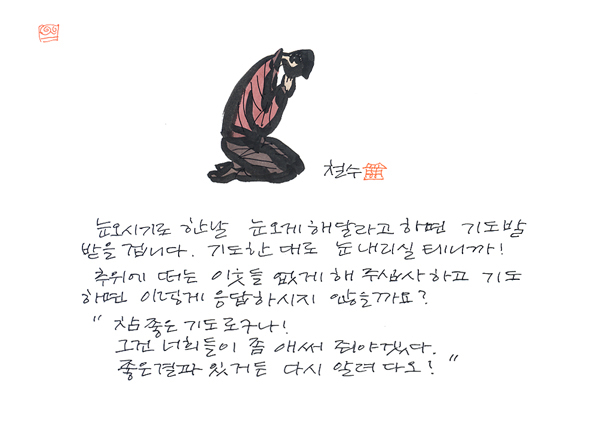 철수
눈오시기로 한날 눈오게 해달라고 하면 기도발
받을 겁니다. 기도한 대로 눈 내리실 테니까!
추위에 떠는 이웃들 없게 해 주십사 하고 기도
하면 이렇게 응답하시지 않을까요?
"참 좋은 기도로구나!
그건 너희들이 좀 애써 줘야겠다.
좋은결과 있거든 다시 알려 다오!"